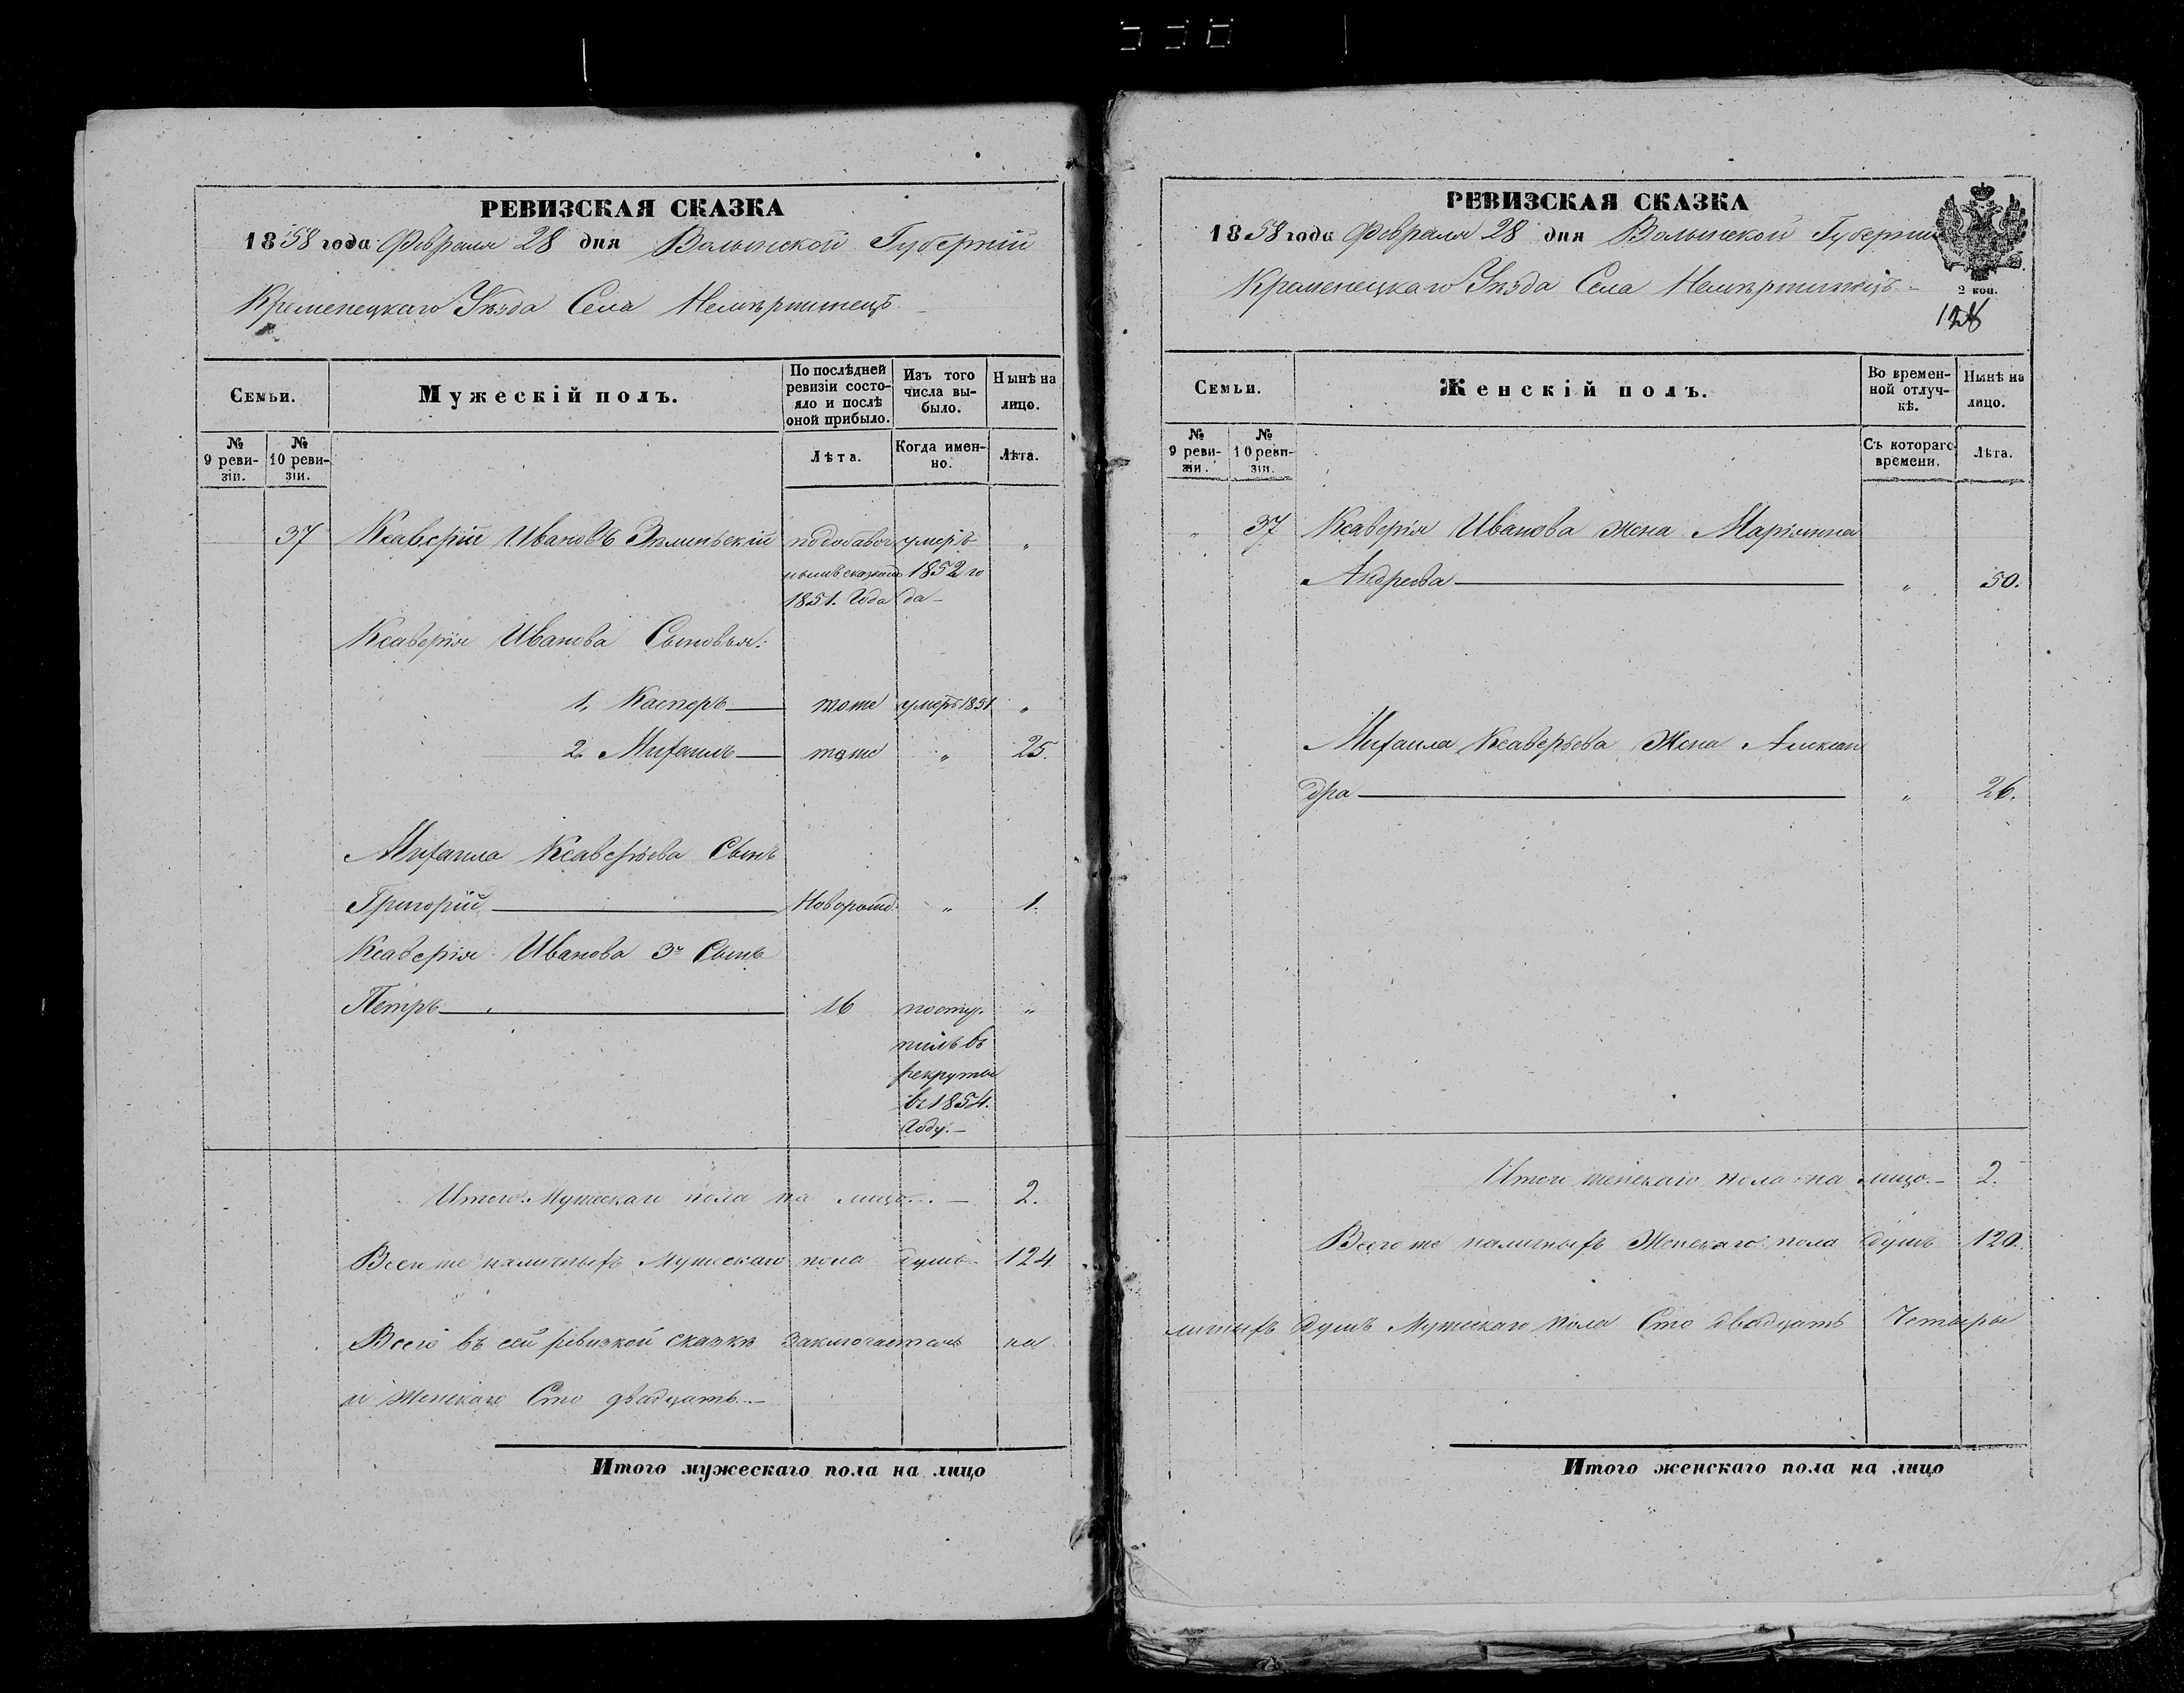 РЕВИЗСКАЯ СКАЗКА
1858 года Февраля 28 дня Волынской Губерніи
Кременецкаго Уѣзда Села
Семьи.
Мужескій полъ.
По послѣдней ревизіи состояло и послѣ оной прибыло.
Изъ того числа выбыло.
Нынѣ на лицо.
№ 9 ревизіи.
№ 10 ревизіи.
Лѣта.
Когда именно.
Лѣта.
37 Ксаверій Ивановъ умеръ "
1852 го
1851. Года да
Ксаверія Иванова Сыновья:
1, Касперъ тоже умеръ 1851 "
2, Михаилъ тоже " 25.
Михаила Ксаверьева Сынъ
Григорій Новорожд. " 1.
Ксаверія Иванова 3й Сынъ
Петръ 16 посту- "
пилъ въ
рекруты
въ 1854.
Году.
Итого Мужескаго пола на лицо 2.
Всего же наличныхъ Мужескаго пола душъ 124
Всего въ сей ревизкой сказкѣ заключается на
и Женскаго Сто двадцать.
Итого мужескаго пола на лицо
РЕВИЗСКАЯ СКАЗКА
1858 года Февраля 28 дня Волынской Губерніи
Кременецкаго Уѣзда Села
2 коп.
Семьи.
Женскій полъ.
Во временной отлучкѣ.
Нынѣ на лицо.
№ 9 ревизіи.
№ 10 ревизіи.
Съ котораго времени.
Лѣта.
" 37 Ксаверія Иванова жена Маріянна
Андреева " 50.
Михаила Ксаверьева Жена Алексан
дра " 26.
Итого женскаго пола на лицо 2.
Всего же наличныхъ Женскаго пола душъ 120.
личныхъ душъ Мужескаго пола Сто двадцать Четыре
Итого женскаго пола на лицо